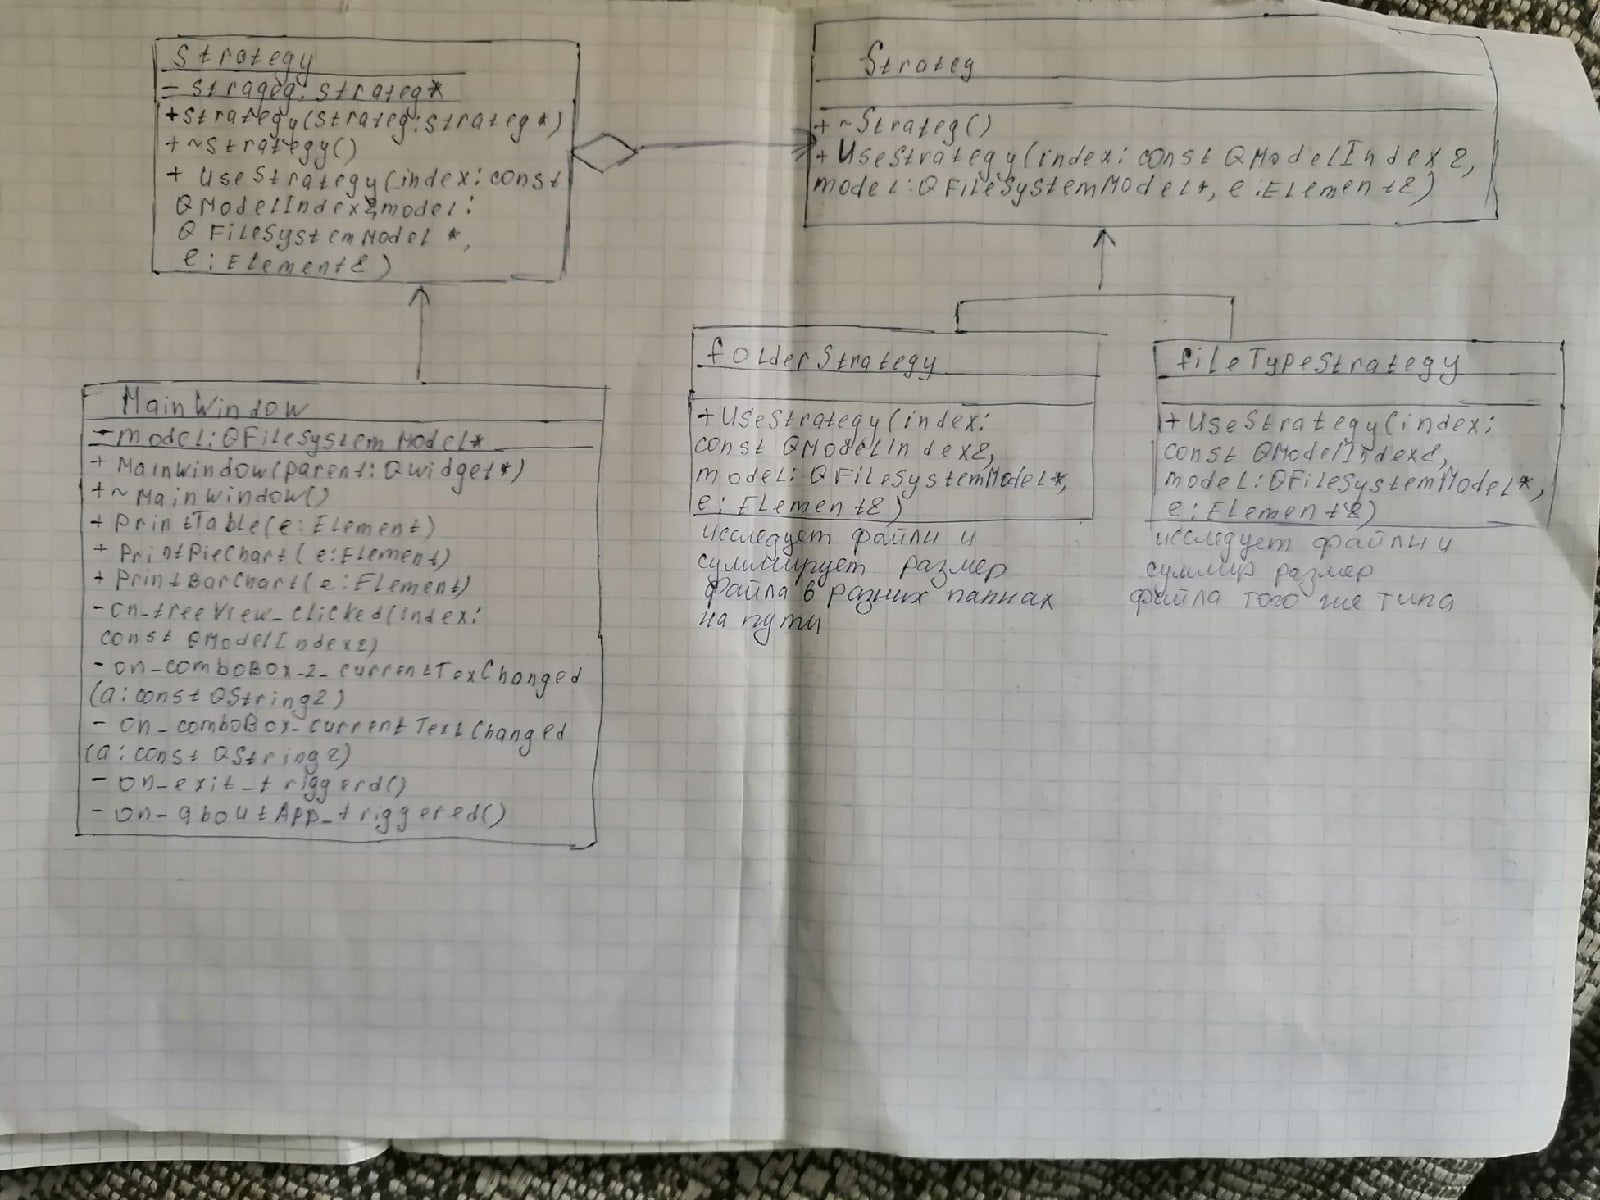 Strategy
- strageg: Strateg*
+Strategy(Strateg:Strateg*)
+~Strategy()
+ UseStrategy(index:const
QModelIndex&,model:
QFileSystemModel *,
e:Element&)
MainWindow
-model:QFileSystemModel*
+ MainWindow(parent:Qwidget*)
+~MainWindow()
+ PrintTable(e:Element)
+ PrintPieChart(e:Element)
+ PrintBarChart(e:Element)
-on_treeView_clicked(index:
const QModelIndex&)
- on_comboBox_2_currentTexChanged
(a:const QString&)
- on_comboBox_currentTextChanged
(a:const QString&)
- on_exit_triggerd()
- on_aboutApp_triggered()
Strateg
+ ~Strateg()
+ UseStrategy(index: const QModelIndex &,
model:QFileSystemModel*, e:Element&)
folderStrategy
+UseStrategy(index:
const QModelIndex&,
model:QFileSystemModel*,
e:Element&)
исследует файлы и
суммирует размер
файла в разных папках
на пути
fileTypeStrategy
+UseStrategy(index:
const QModelIndex&,
model:QFileSystemModel*,
e:Element&)
исследует файлы и
суммир размер
файла того же типа